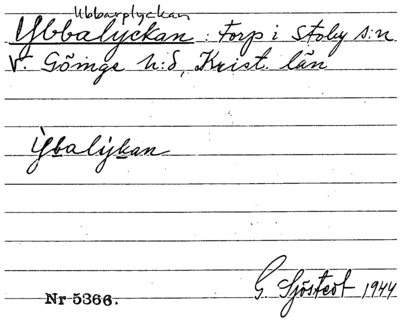 Ubbarplyckan
Ybbalyckan : Torp i Stoby s:n
V. Göinge h:d, Krist. län
Ỳbalýkan
G. Sjöstedt 1944
Nr 5366.